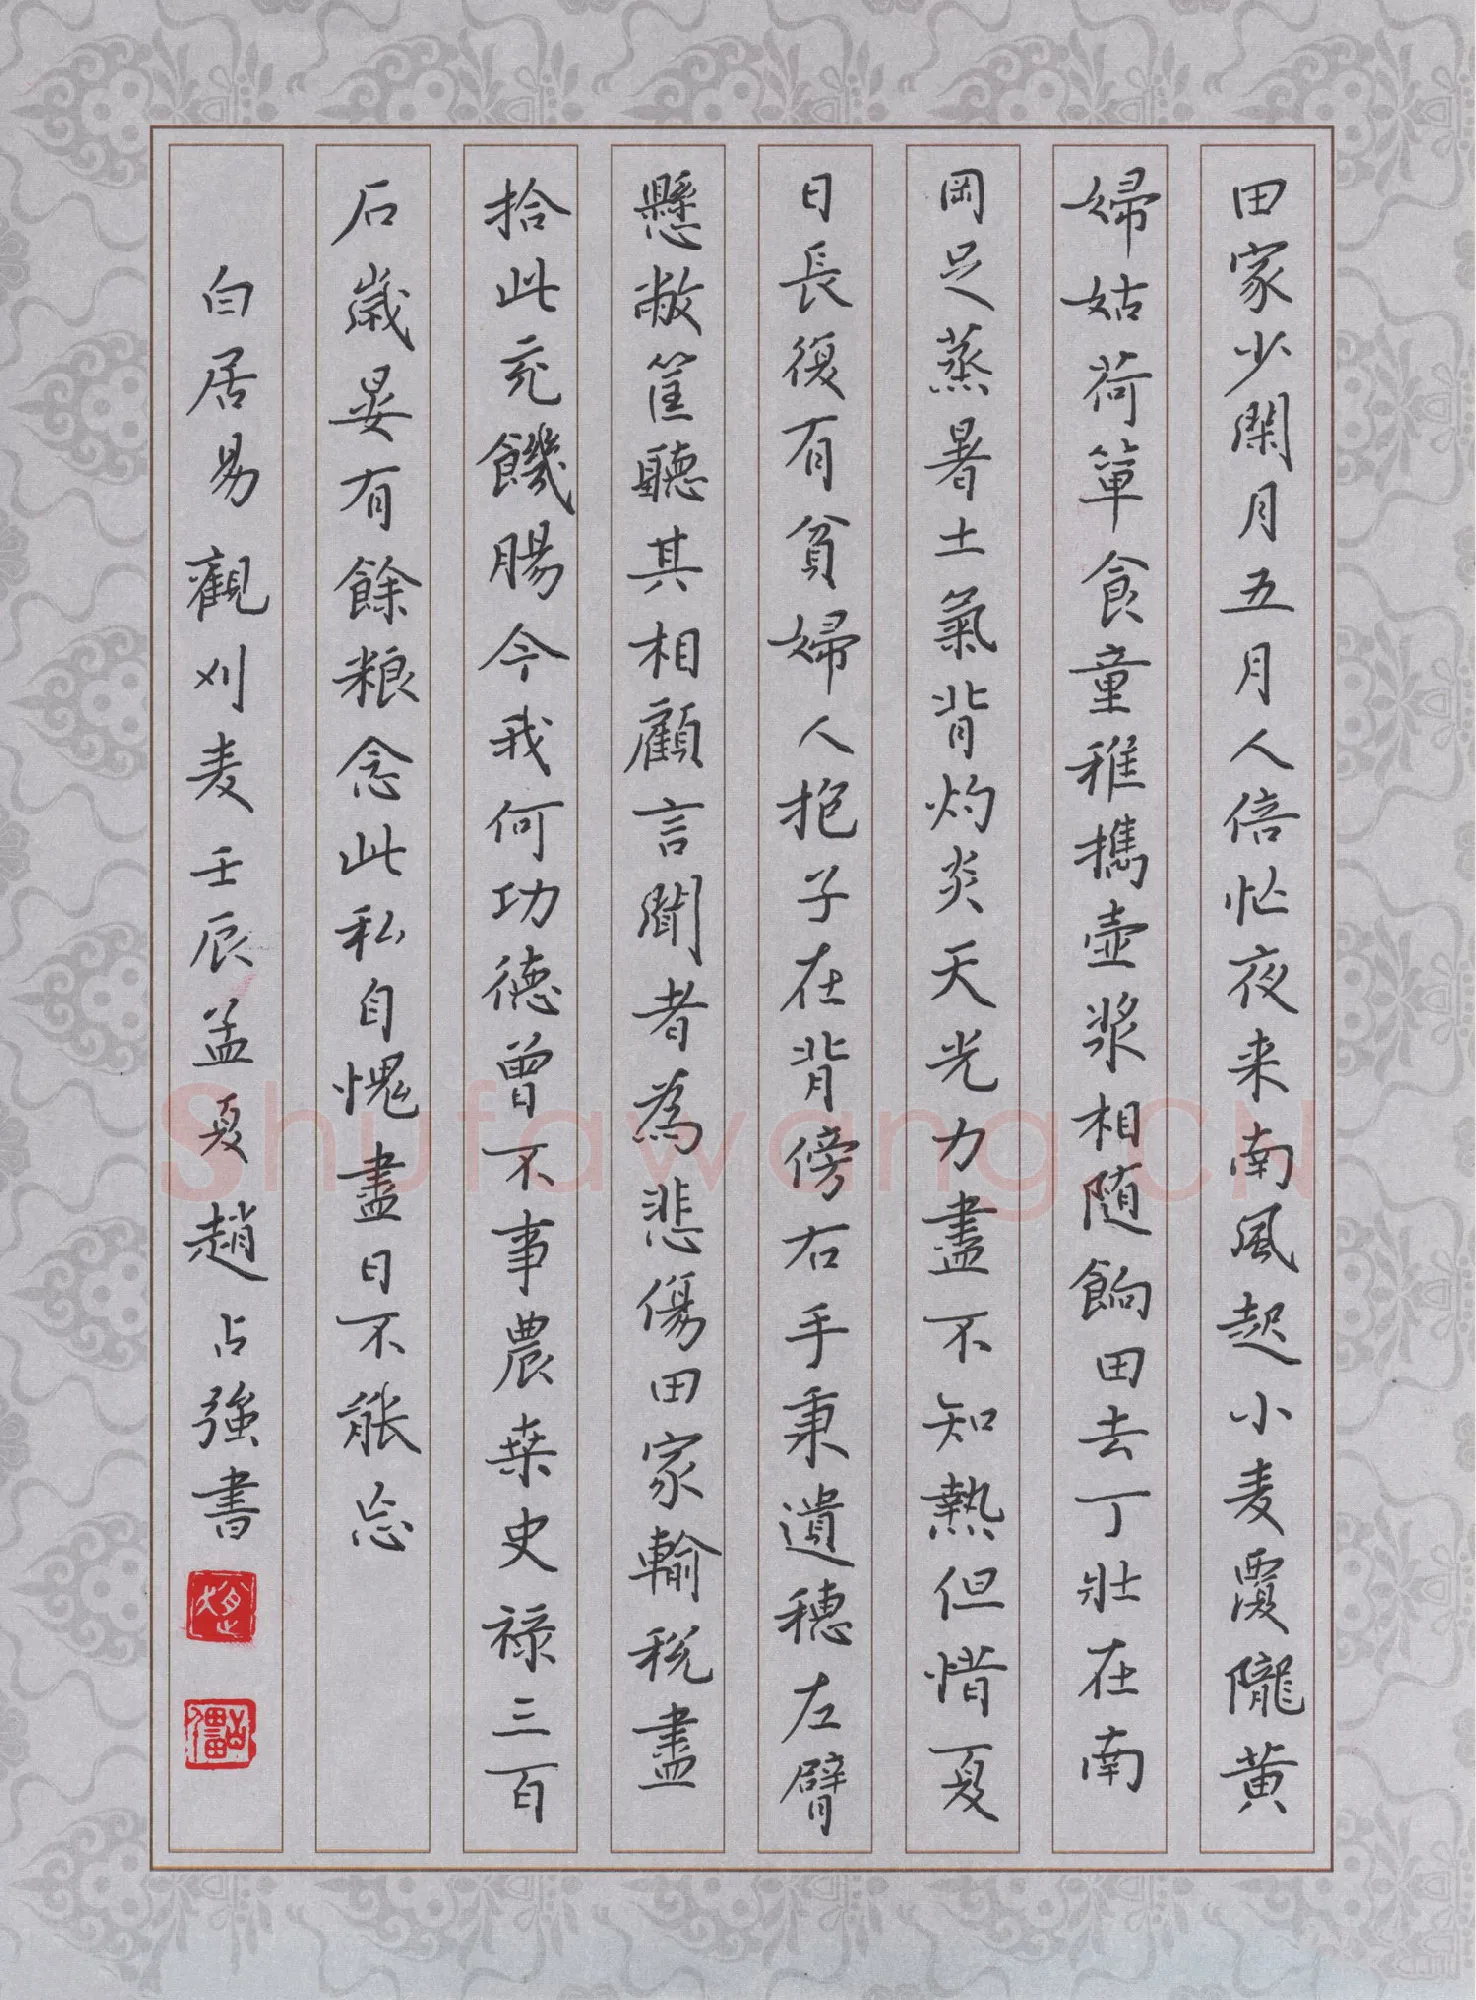 田家少閑月五月人倍忙夜来南風起小麦覆隴黃
婦姑荷簞食童稚攜壺漿相随餉田去丁壯在南
岡足蒸暑土氣背灼炎天光力盡不知熱但惜夏
日長復有貧婦人抱子在背傍右手秉遺穗左臂
懸敝筐聽其相顧言聞者為悲傷田家輸税盡
拾此充饑腸今我何功德曾不事農桒吏禄三百
石歲晏有餘粮念此私自愧盡日不能忘
白居易觀刈麦壬辰孟夏趙占強書
Shufawang.CN